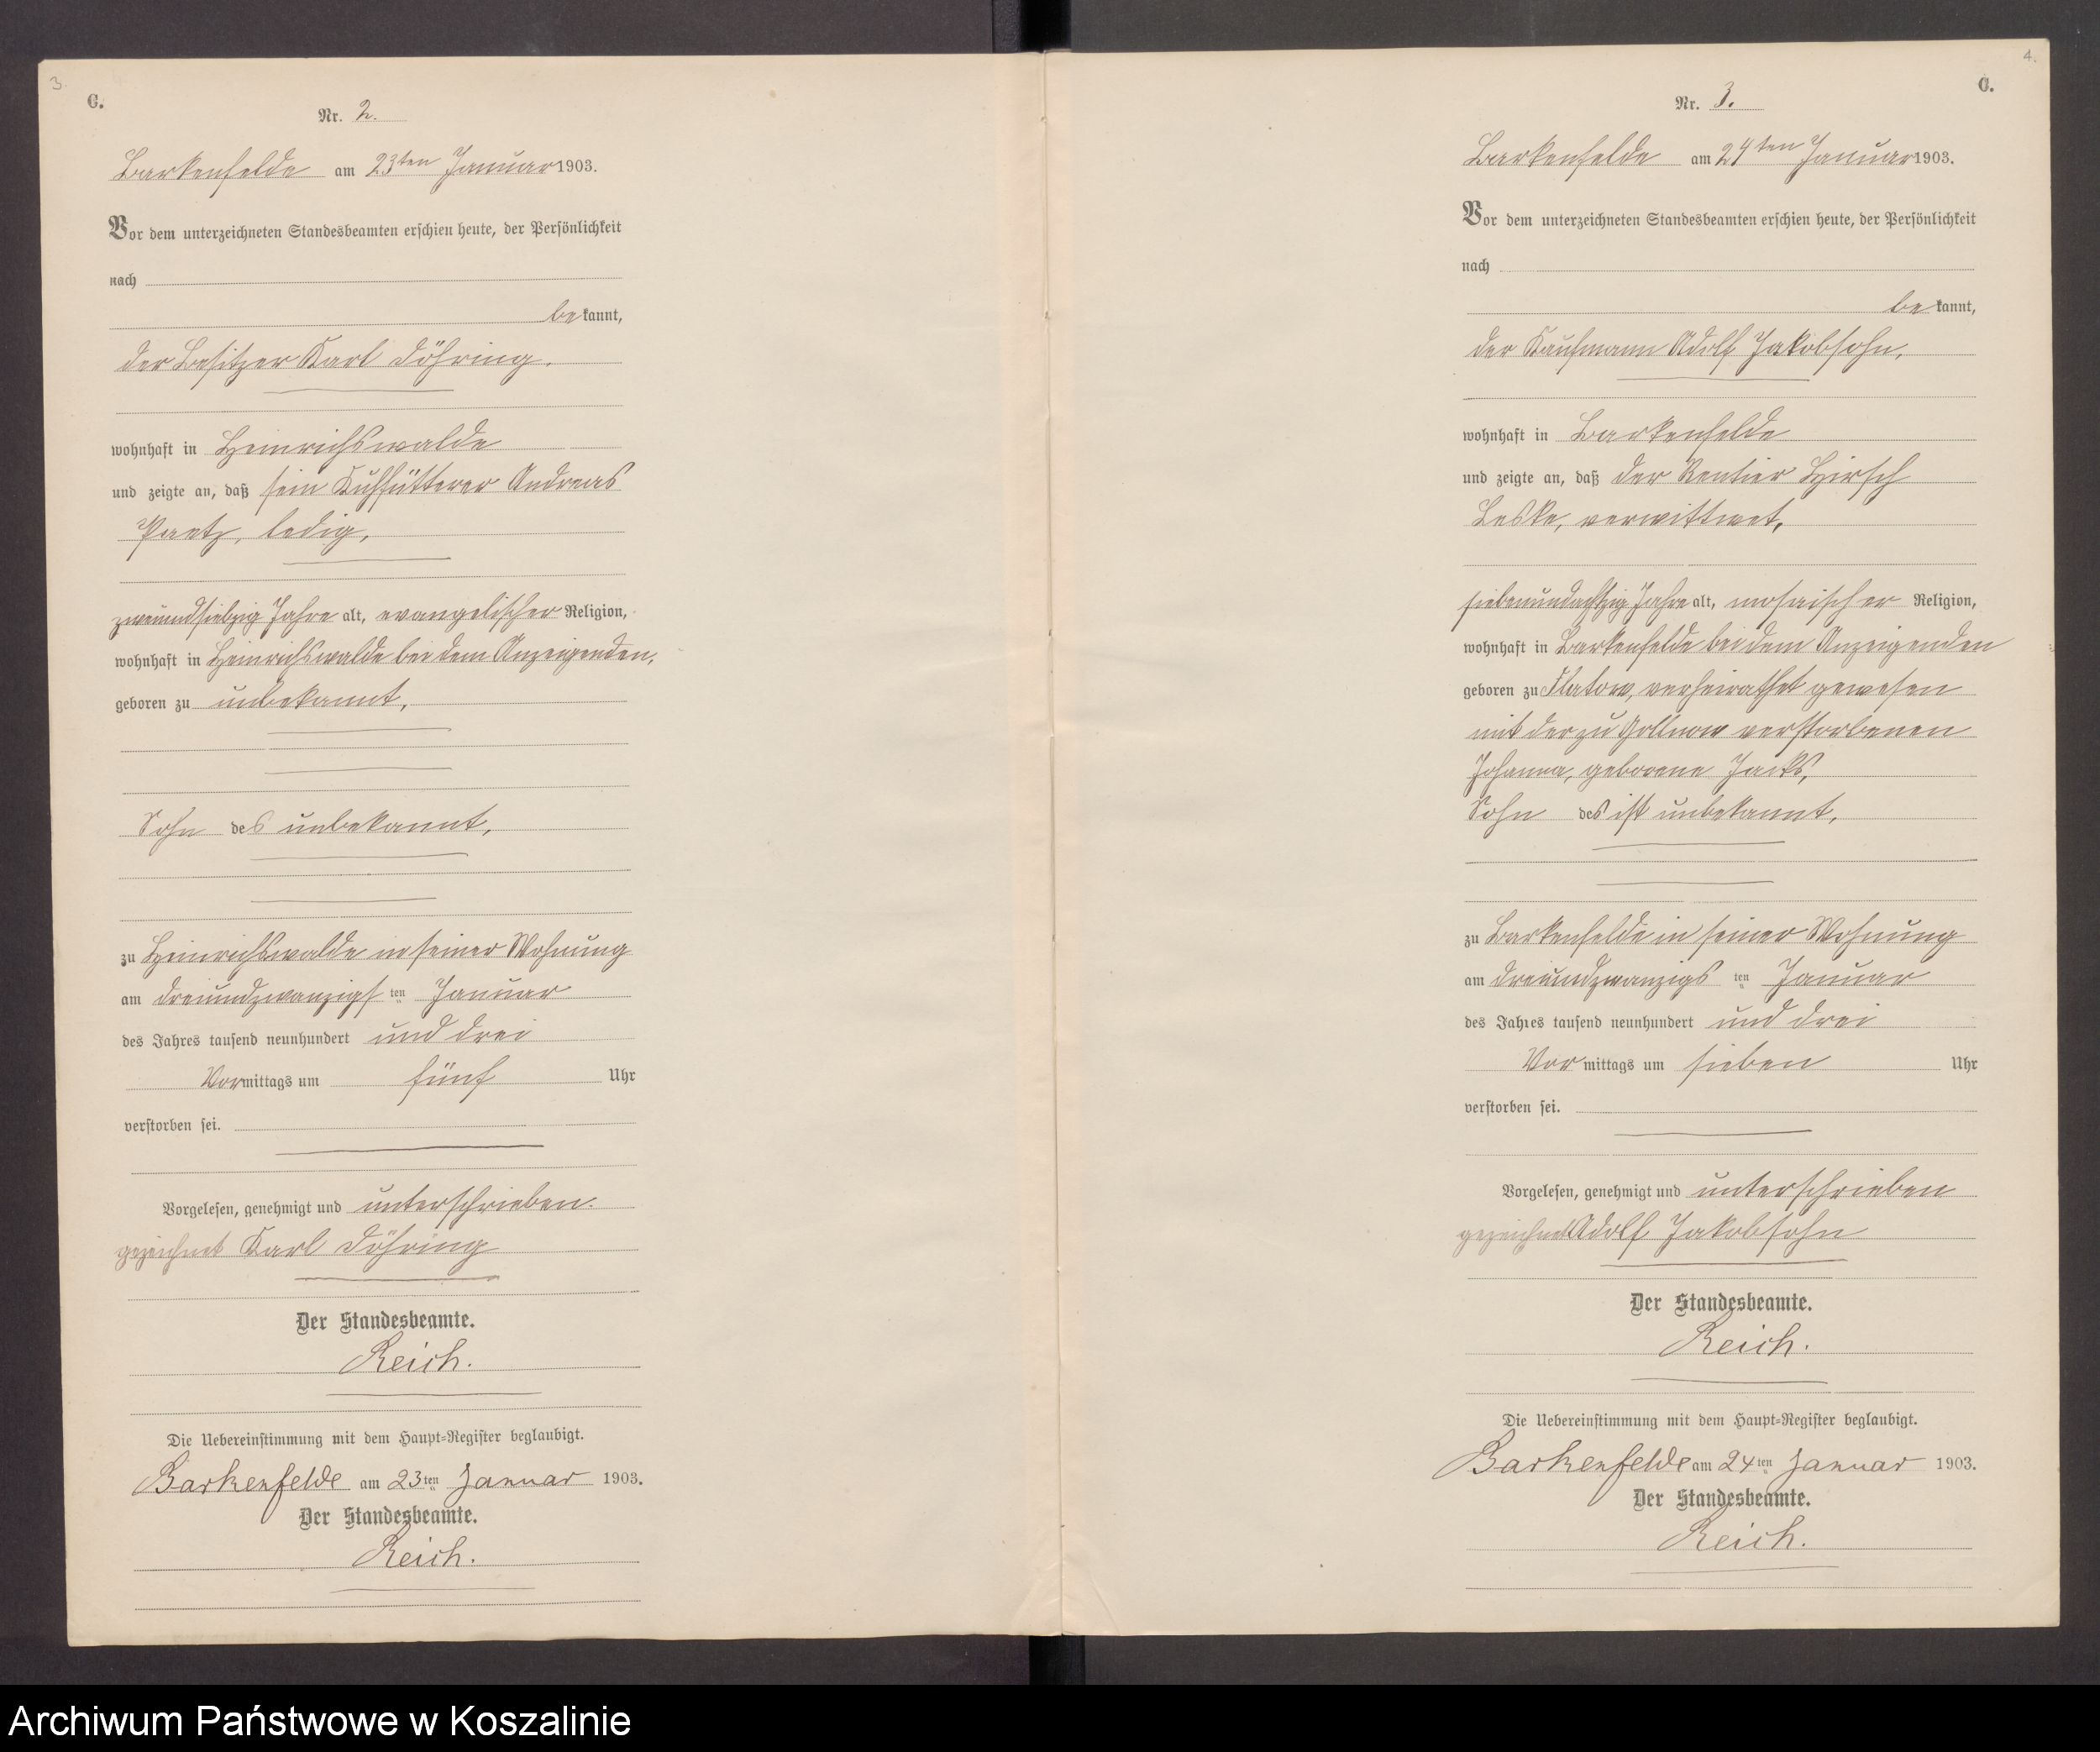 3.
C.
Nr. 2.
Barkenfelde am 23ten Januar 1903.
Vor dem unterzeichneten Standesbeamten erschien heute, der Persönlichkeit
nach
bekannt,
der Besitzer Karl Döhring.
wohnhaft in Heinrichswalde
und zeigte an, daß sein Kuhfütterer Andreas
Paetz, ledig,
zweiundsiebzig Jahre alt, evangelischer Religion,
wohnhaft in Heinrichswalde bei dem Anzeigenden,
geboren zu unbekannt,
Sohn des unbekannt,
zu Heinrichswalde in seiner Wohnung
am dreiundzwanzigsten Januar
des Jahres tausend neunhundert und drei
Vormittags um fünf Uhr
verstorben sei.
Vorgelesen, genehmigt und unterschrieben.
gezeichnet Karl Döhring
Der Standesbeamte.
Reich.
Die Uebereinstimmung mit dem Haupt-Register beglaubigt.
Barkenfelde am 23ten Januar 1903.
Der Standesbeamte.
Reich.
4.
C.
Nr. 3.
Barkenfelde am 24ten Januar 1903.
Vor dem unterzeichneten Standesbeamten erschien heute, der Persönlichkeit
nach
bekannt,
der Kaufmann Adolf Jakobsohn,
wohnhaft in Barkenfelde
und zeigte an, daß der Rentier Hirsch
Leske, verwittwet,
siebenundachtzig Jahre alt, mosaischer Religion,
wohnhaft in Barkenfelde bei dem Anzeigenden
geboren zu Flatow, verheirathet gewesen
mit der zu Gollnow verstorbenen
Johanna, geborene Jacks,
Sohn des ist unbekannt,
zu Barkenfelde in seiner Wohnung
am dreiundzwanzigsten Januar
des Jahres tausend neunhundert und drei
Vormittags um sieben Uhr
verstorben sei.
Vorgelesen, genehmigt und unterschrieben
gezeichnet Adolf Jakobsohn
Der Standesbeamte.
Reich.
Die Uebereinstimmung mit dem Haupt-Register beglaubigt.
Barkenfelde am 24ten Januar 1903.
Der Standesbeamte.
Reich.
Archiwum Państwowe w Koszalinie